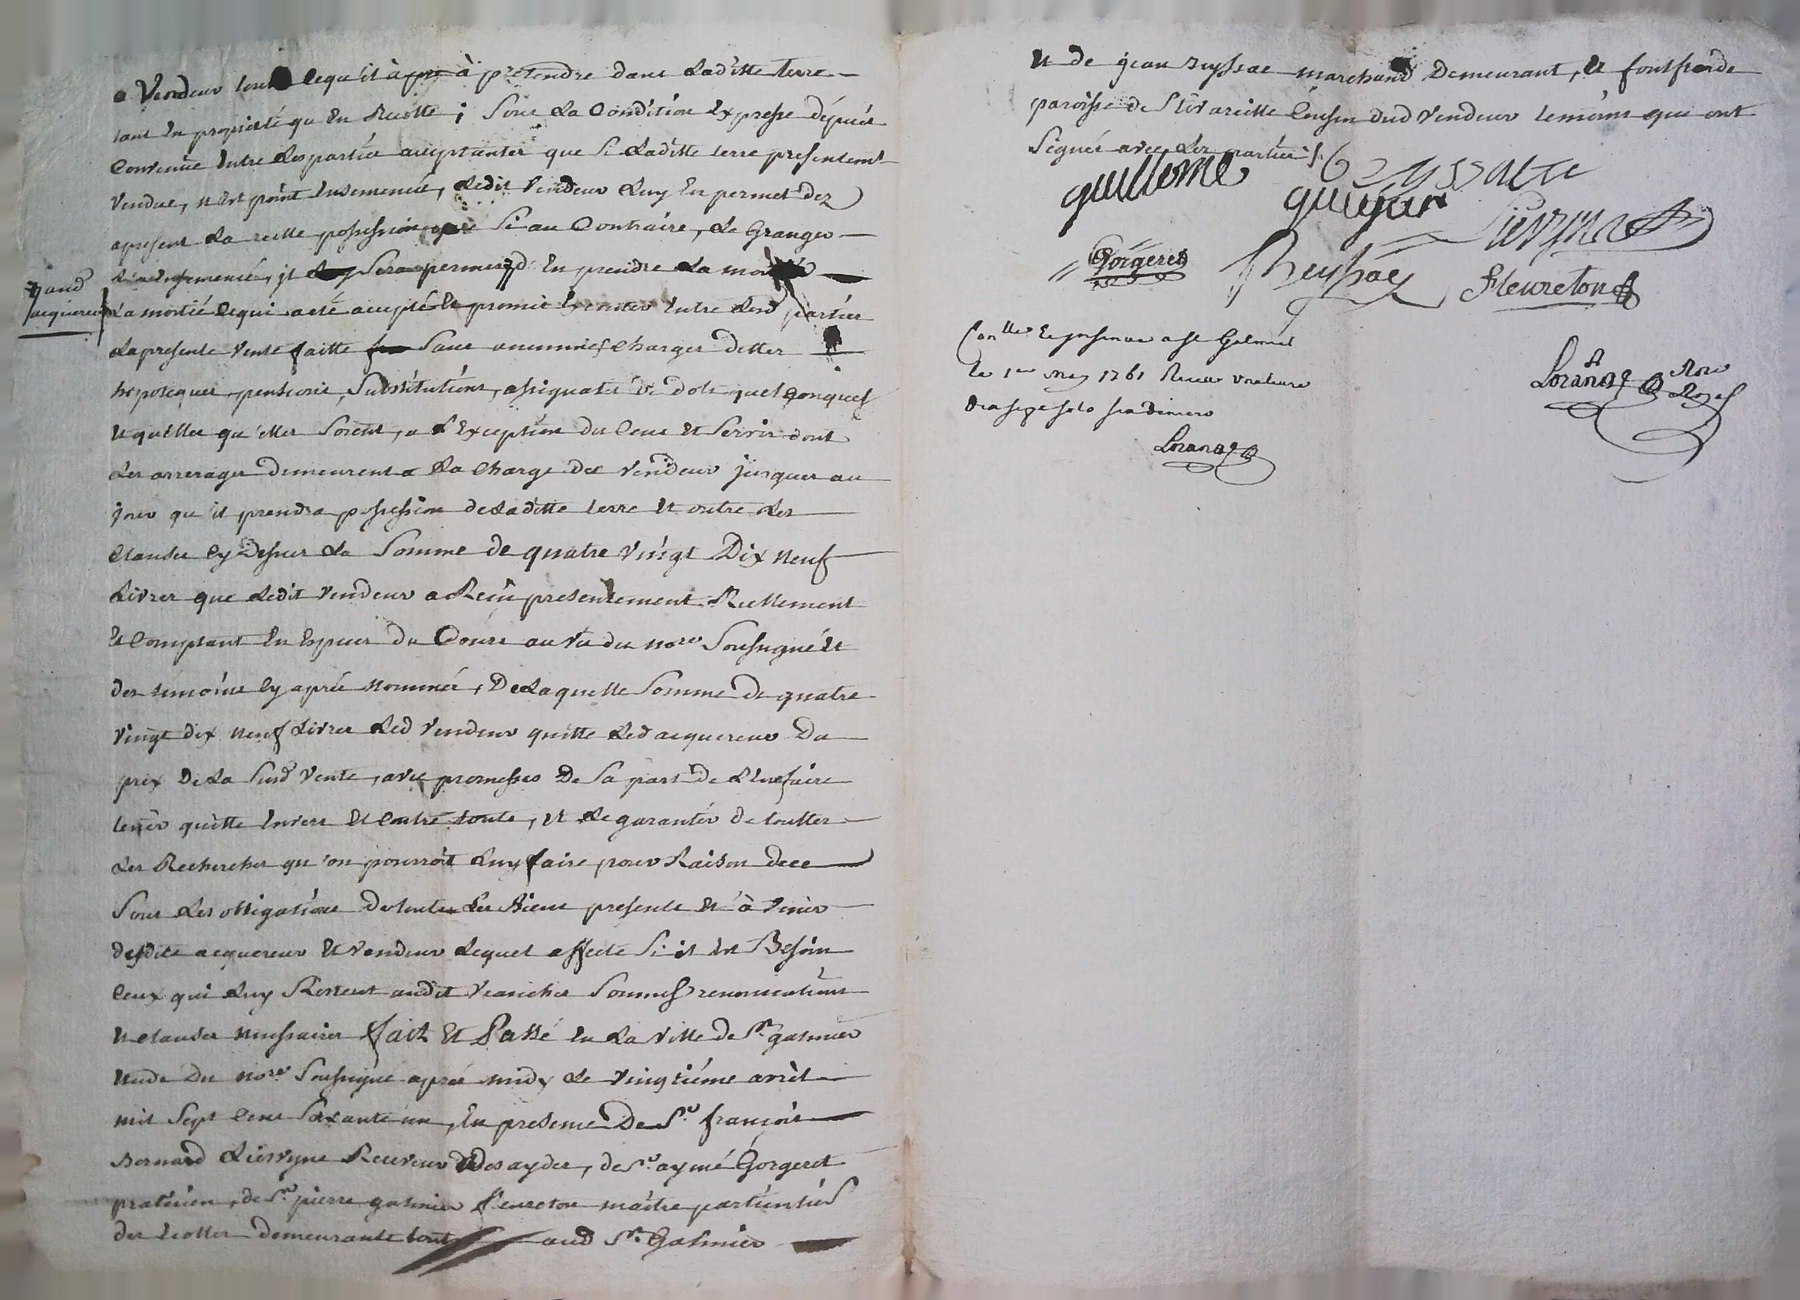 Vendeur tout ce qu'il à à pretendre dans Laditte terre
tant En proprieté qu'En Recolte ; Sous La Condition Expresse
Convenüe Entre Les parties acceptantes que Si Laditte terre presentement
Vendue, n'Est point Ensemencé, Ledit Vendeur Luy En permet dez
apresent La réelle possession que Si au Contraire, Le Granger
L'a Ensemencé, il Sera permis d'En prendre La moitié
aud acquereur
La moitié Ce qui a eté accepté Et promis Executer Entre Lesd parties
La presente Vente faitte Sans aucunnes Charges dettes
hipoteques, pensions, Substitutions, assignats de dots quelconques
Et quelles qu'elles Soient, a L'Exception du Cens Et Servis dont
Les arrerages demeurent a La Charge du Vendeur jusques au
jour qu'il prendra possession de Laditte terre Et outre Les
Clauses Cy Dessus La Somme de quatre Vingt Dix neuf
Livres que Ledit Vendeur a Reçu presentement Reellement
Et Comptant En Especes du Cours au Vu du nore Soussigné Et
des temoins Cy aprés Nommés, De Laquelle Somme de quatre
Vingt dix neuf Livres Led Vendeur quitte Led acquereur Du
prix De La Susd Vente, avec promesses De Sa part de L'En faire
tenir quitte Envers Et Contre touts, Et Le garantir de touttes
Les Recherches qu'on pourroit Luy faire pour Raison de ce
Sous Les obligations De touts Les Biens presents Et à Venir
desdits acquereur Et Vendeur Lequel affecte Si il Est Besoin
Ceux qui Luy Restent audit Soumis renonciations
Et Clauses necessaires fait Et Passé En La Ville de St galmier
Etude Du nore Soussigné aprés midy Le Vingtiéme avril
mil Sept Cens Soixante un, En presence De Sr françois
Bernard Liervyne Receveur Des aydes, de Sr aymé Gorgeret
praticien, de Sr pierre galmier fleureton maitre particulier
des Ecolles demeurants touts aud St Galmier
Et de jean Reyssac marchand Demeurant, à fontfroide
paroisse de Cousin dud Vendeur temoins qui ont
Signés avec Les parties
guilleme
Gorgeret
Fleureton
Conlle Et a St Galmier
Le 1er may 1761 Receu
Loranger
Loranger Nore
Royal